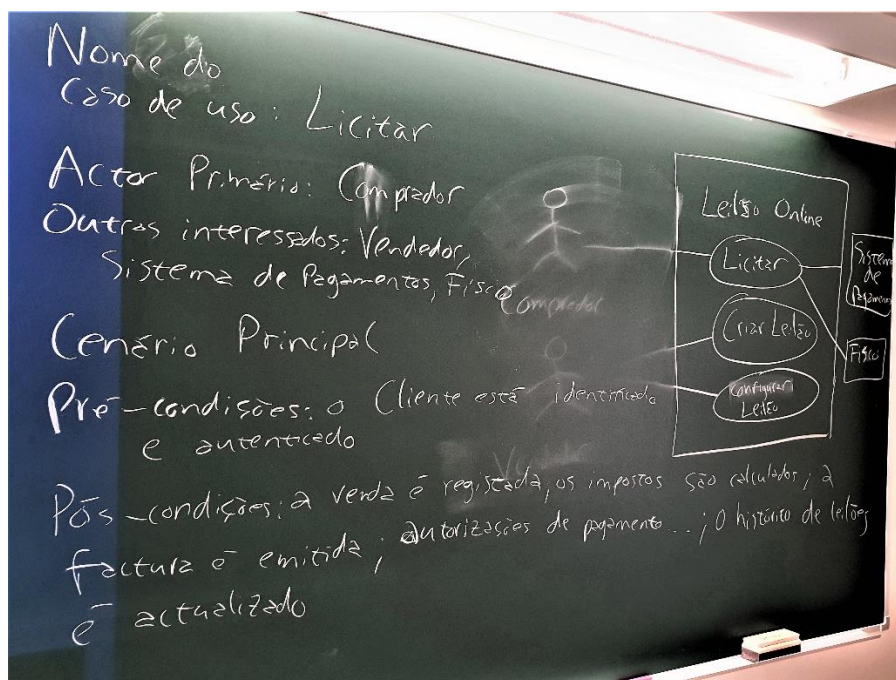 Nome do
Caso de uso: Licitar
Actor Primário: Comprador
Outros interessados: Vendedor,
Sistema de Pagamentos, Fisco
Cenário Principal
Pré-condições: o Cliente está identificado
e autenticado
Pós-condições: a venda é registada, os impostos são calculados; a
factura é emitida; autorizações de pagamento...; o histórico de leilões
é actualizado
Comprador
Leilão Online
Licitar
Criar Leilão
Configurar
Leilão
Sistema
de
Fisco